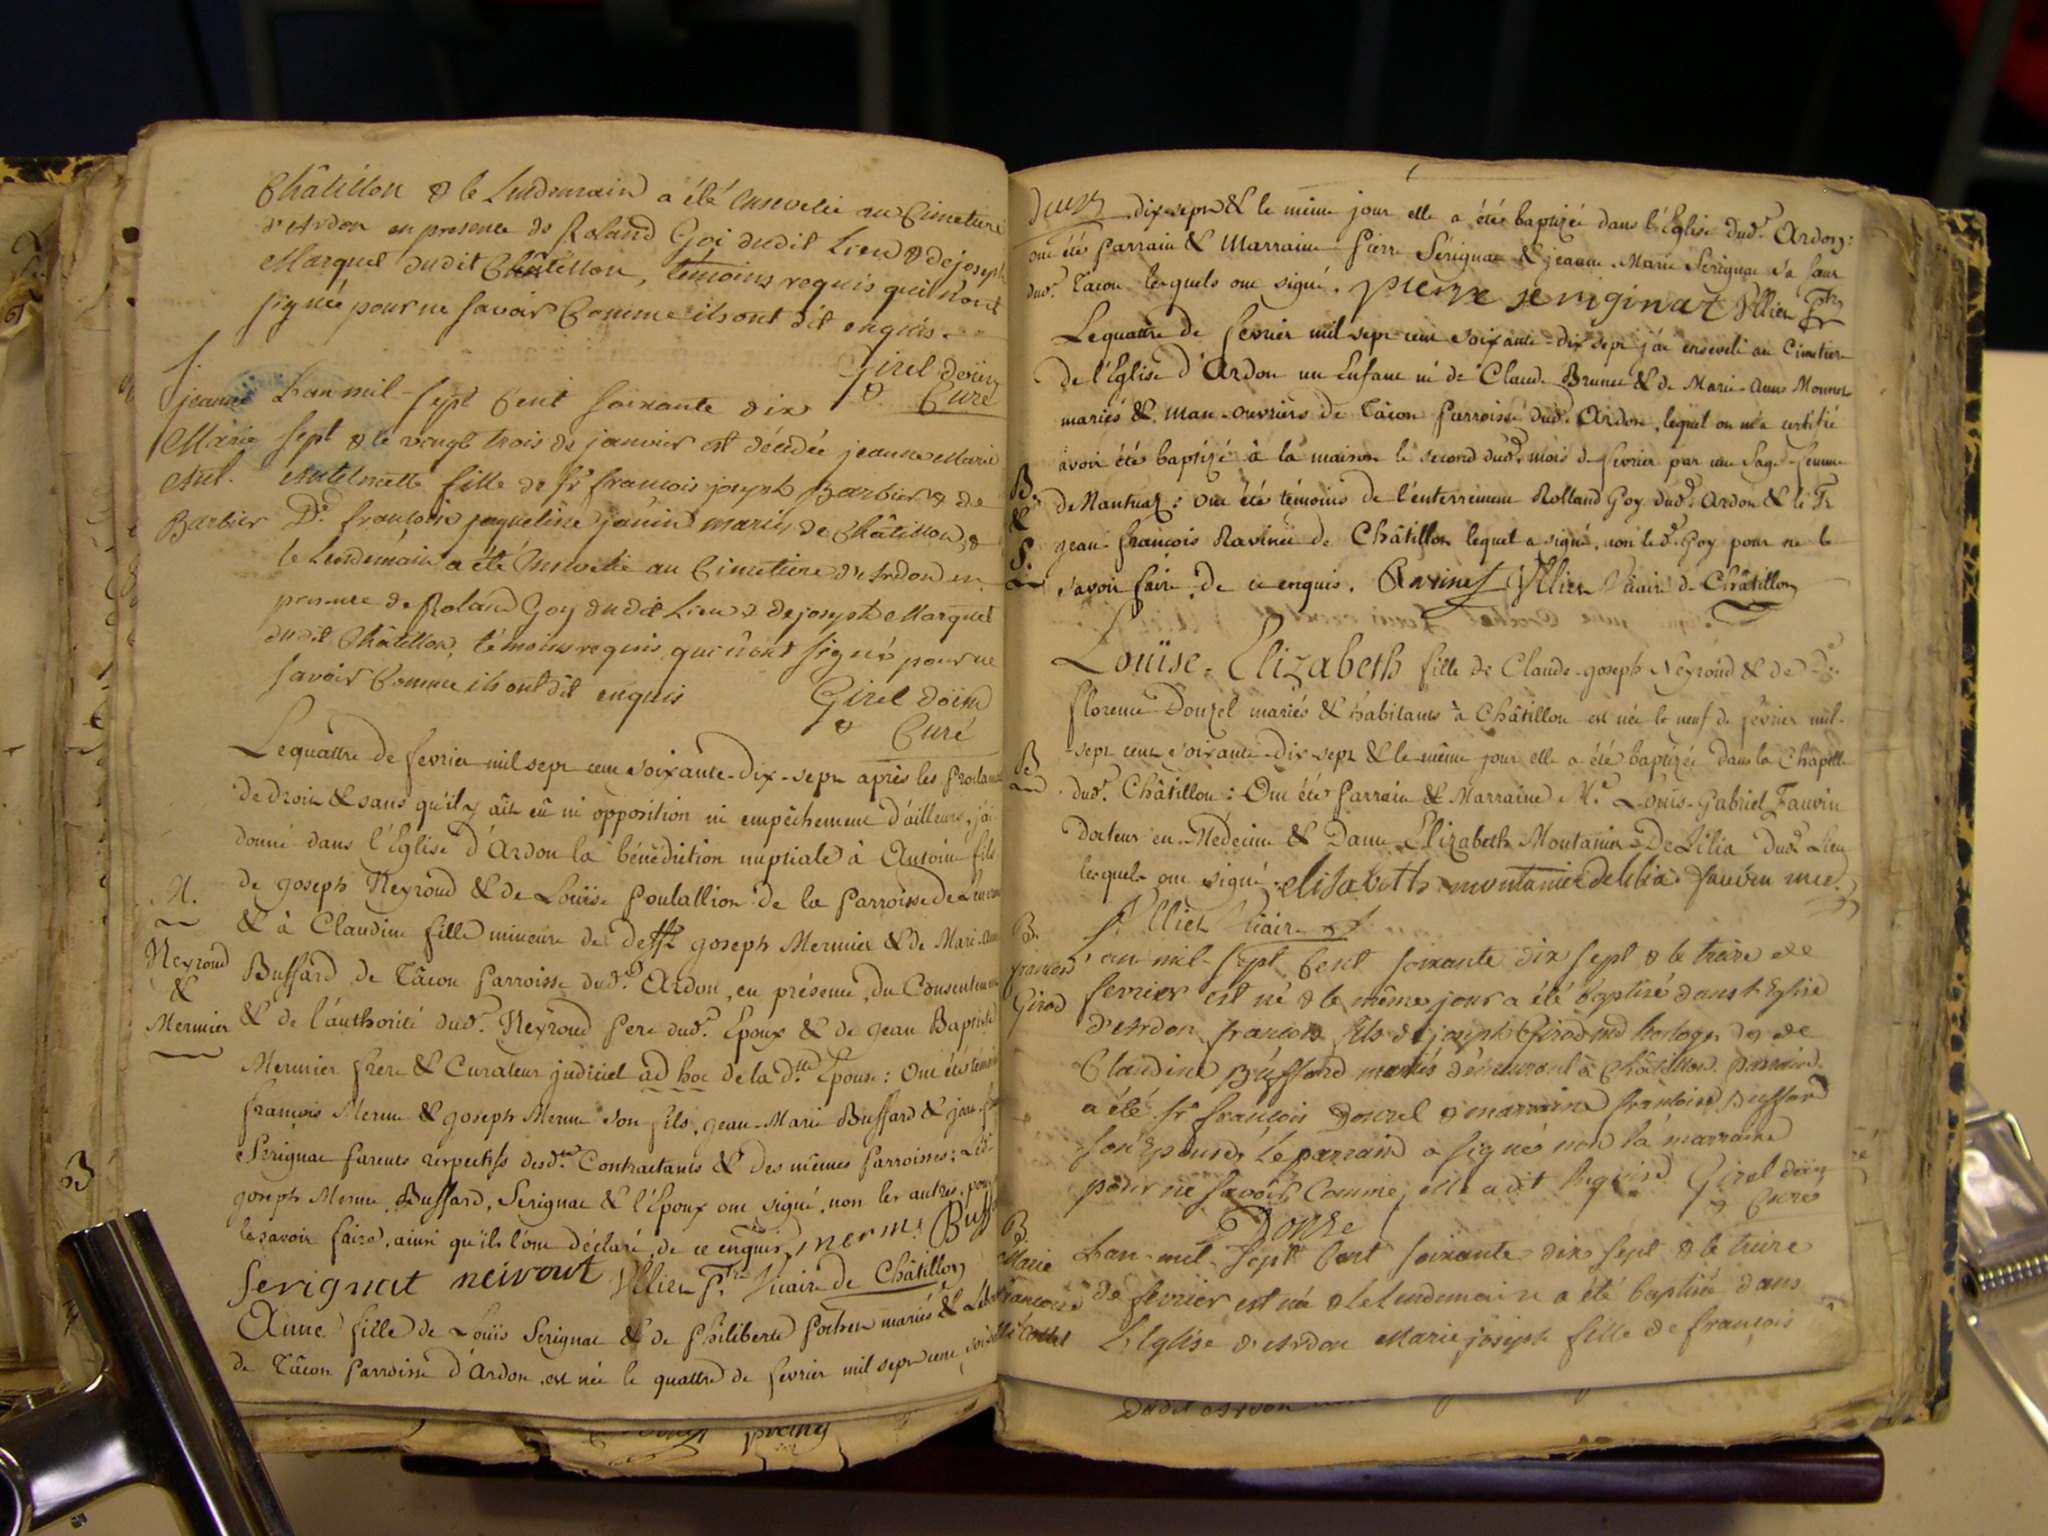 Châtillon & le Lendemain a été ensevelie au Cimetiere
d'Ardon en presence de Roland Goi dudit Lieu & de joseph
Marquel dudit Châtillon, témoins requis qui n'ont
signée pour ne savoir Comme ils ont dit enquis.
Girel doïen
& Curé
S.
jeanne
Marie
Ant.
Barbier
L'an mil-sept Cent soixante dix
sept & le vingt trois de janvier est décédée jeanne Marie
Antelmette fille de Sr. francois joseph Barbier & de
De. francoise jaqueline janin mariés de Châtillon, &
le Lendemain a été Ensevelie au Cimetiere d'Ardon en
presence de Roland Goy dudit Lieu & de joseph Marquel
dudit Châtillon, témoins requis qui n'ont signé pour ne
savoir Comme ils ont dit enquis
Girel doïen
& Curé
M.
Neyroud
&
Mermier
Le quattre de fevrier mil sept cent soixante-dix-sept après les proclama
de droit & sans qu'il y ait eû ni opposition ni empêchement d'ailleurs, j'ai
donné dans l'Eglise d'Ardon la bénédiction nuptiale à Antoine fils
de joseph Neyroud & de Louïse Poulallion de la Parroisse de
& à Claudine fille mineure de defft joseph Mermier & de Marie-Anne
Buffard de Tâcon Parroisse dud. Ardon, en présence, du Consentement
& de l'authorité dud. Neyroud Pere dud. Epoux & de jean Baptiste
Mermier frere & Curateur judiciel ad hoc de la dtte Epouse : Ont étés témoins
françois Merme & joseph Merme son fils, jean-Marie Buffard &
Serignat Parents respectifs desd. Contractants & des mêmes Parroisses;
joseph Merme, Buffard, Serignat & l'Epoux ont signé, non les autres, pour
le savoir faire, ainsi qu'ils l'ont déclaré, de ce enquis, merme Buff
Serignat neirout Ullier Ptre Vicaire de Châtillon
Anne fille de Louïs Serignat & de Philiberte Pochet mariés &
de Tâcon Parroisse d'Ardon, est née le quattre de fevrier mil sept cent
dix-sept & le même jour elle a étée baptizée dans l'Eglise dud. Ardon:
ont été Parrain & Marraine Pierre Sérignat & jeanne-Marie Serignat sa sœur
dud. Tâcon lesquels ont signé. pierre seriginat Ullier Ptre
B.
&
S.
Le quattre de fevrier mil sept cent soixante-dix sept j'ai enseveli au Cimetiere
de l'Eglise d'Ardon un Enfant né de Claude Brunet & de Marie-Anne Monnet
mariés & man-ouvriers de Tâcon Parroisse dud. Ardon, lequel on m'a certifié
avoir été baptizé à la maison le second dud. mois de fevrier par une Sage-femme
de Nantua : ont été témoins de l'enterrement Rolland Goy dud. Ardon & le Sr
jean françois Ravinet de Châtillon lequel a signé, non led. Goy pour ne le
savoir faire, de ce enquis. Ravinet Ullier Vicaire de Châtillon
B
Louïse-Elizabeth fille de Claude-joseph Neyroud & de De
Florence Douzel mariés & habitants à Châtillon est née le neuf de fevrier mil-
sept cent soixante-dix-sept & le même jour elle a été baptizée dans la Chapelle
dud. Châtillon : Ont été Parrain & Marraine Mre Louïs-Gabriel Fauvin
Docteur en Médecine & Dame Elizabeth Montanier-De Lilia dud. Lieu
lesquels ont signé. elisabeth montanier delilia fauvin med.
Ullier Vicaire
B.
françois
Girod
L'an mil-sept Cent soixante dix sept & le treize de
fevrier est né & le même jour a été baptisé dans l'Eglise
d'Ardon francois fils de joseph Girod md horloger & de
Claudine Buffard mariés demeurant à Châtillon. parrain
a été Sr francois Douzel & marraine francoise Buffard
son Epouse, Le parrain a signé non la marraine
pour ne savoir Comme elle a dit Enquise Girel doïen
& Curé
Douze
B.
Marie
francoise
L'an-mil-sept Cent soixante dix sept & le treize
de fevrier est née & le Lendemain a été baptisée dans
L'Eglise d'Ardon Marie joseph fille de francois
dudit Ardon